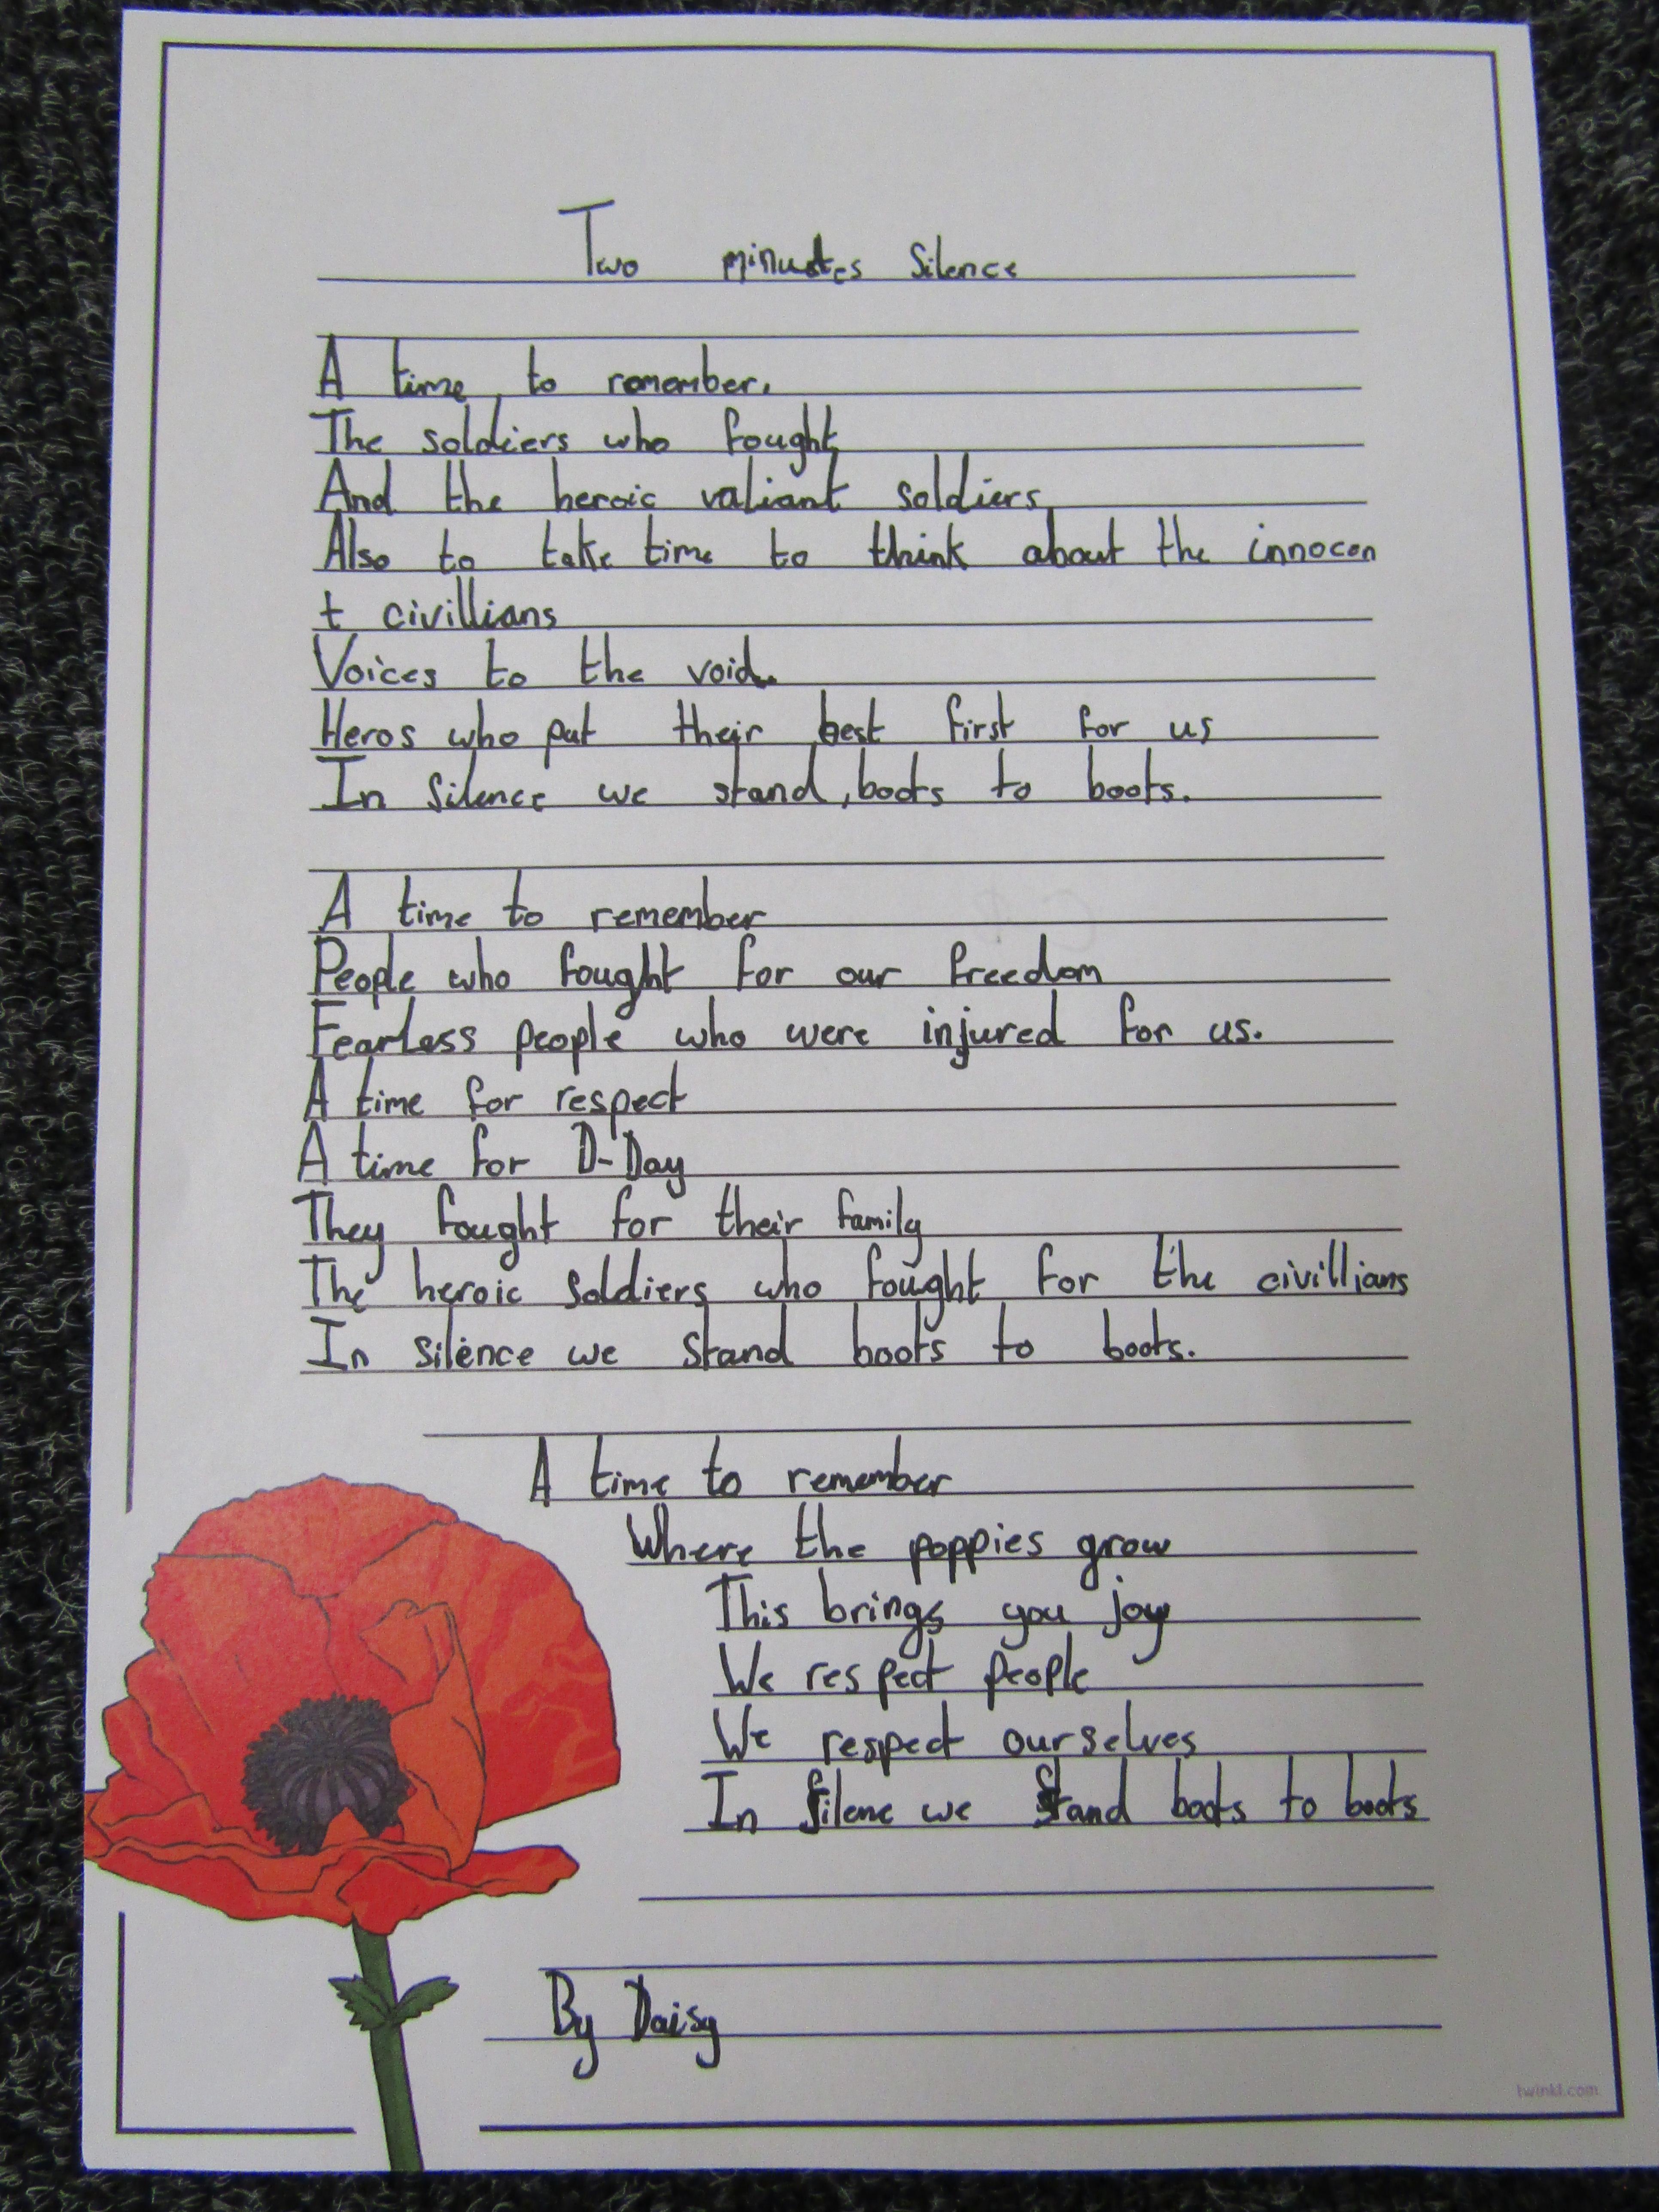 Two minutes Silence
A time to remember.
The soldiers who fought
And the heroic valiant soldiers
Also to take time to think about the innocen
t civillians
Voices to the void.
Heros who put their best first for us
In Silence we stand, boots to boots.
A time to remember
People who fought for our freedom
Fearless people who were injured for us.
A time for respect
A time for D-Day
They fought for their family
The heroic soldiers who fought for the civillians
In silence we stand boots to boots.
A time to remember
Where the poppies grow
This brings you joy
We respect people
We respect ourselves
In Silene we Stand boots to boots
By Daisy
twinkl.com